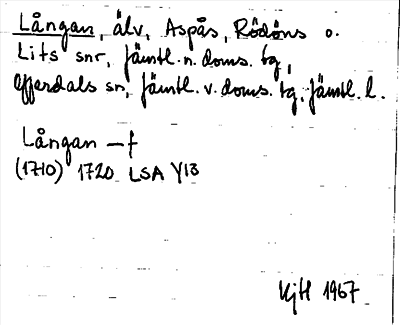 Långan, älv, Aspås, Rödöns o.
Lits snr, Jämtl. n. doms. tg,
Offerdals sn, Jämtl. v. doms. tg, Jämtl. l.
Långan – f
(1710) 1720 LSA Y13
KjH 1967